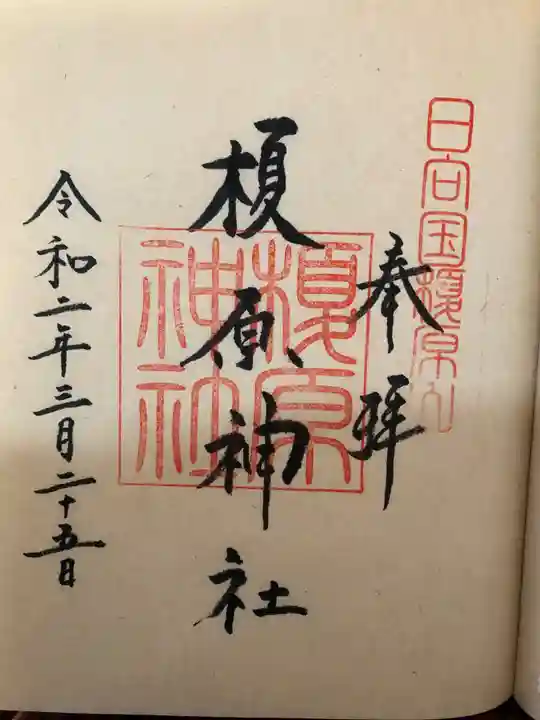 日向国榎原
奉拝
榎原神社
榎原神社
令和二年三月二十五日